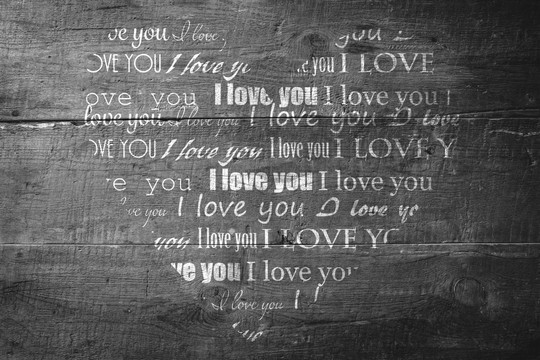 ve you I love you
OVE YOU I love yo you I LOVE
ove you I love you I love you
love you I love you I love you I love
OVE YOU I love you I love you I LOVE Y
e you I love you I love you
ve you I love you I love yo
you I love you I LOVE YO
ve you I love you
I love you I